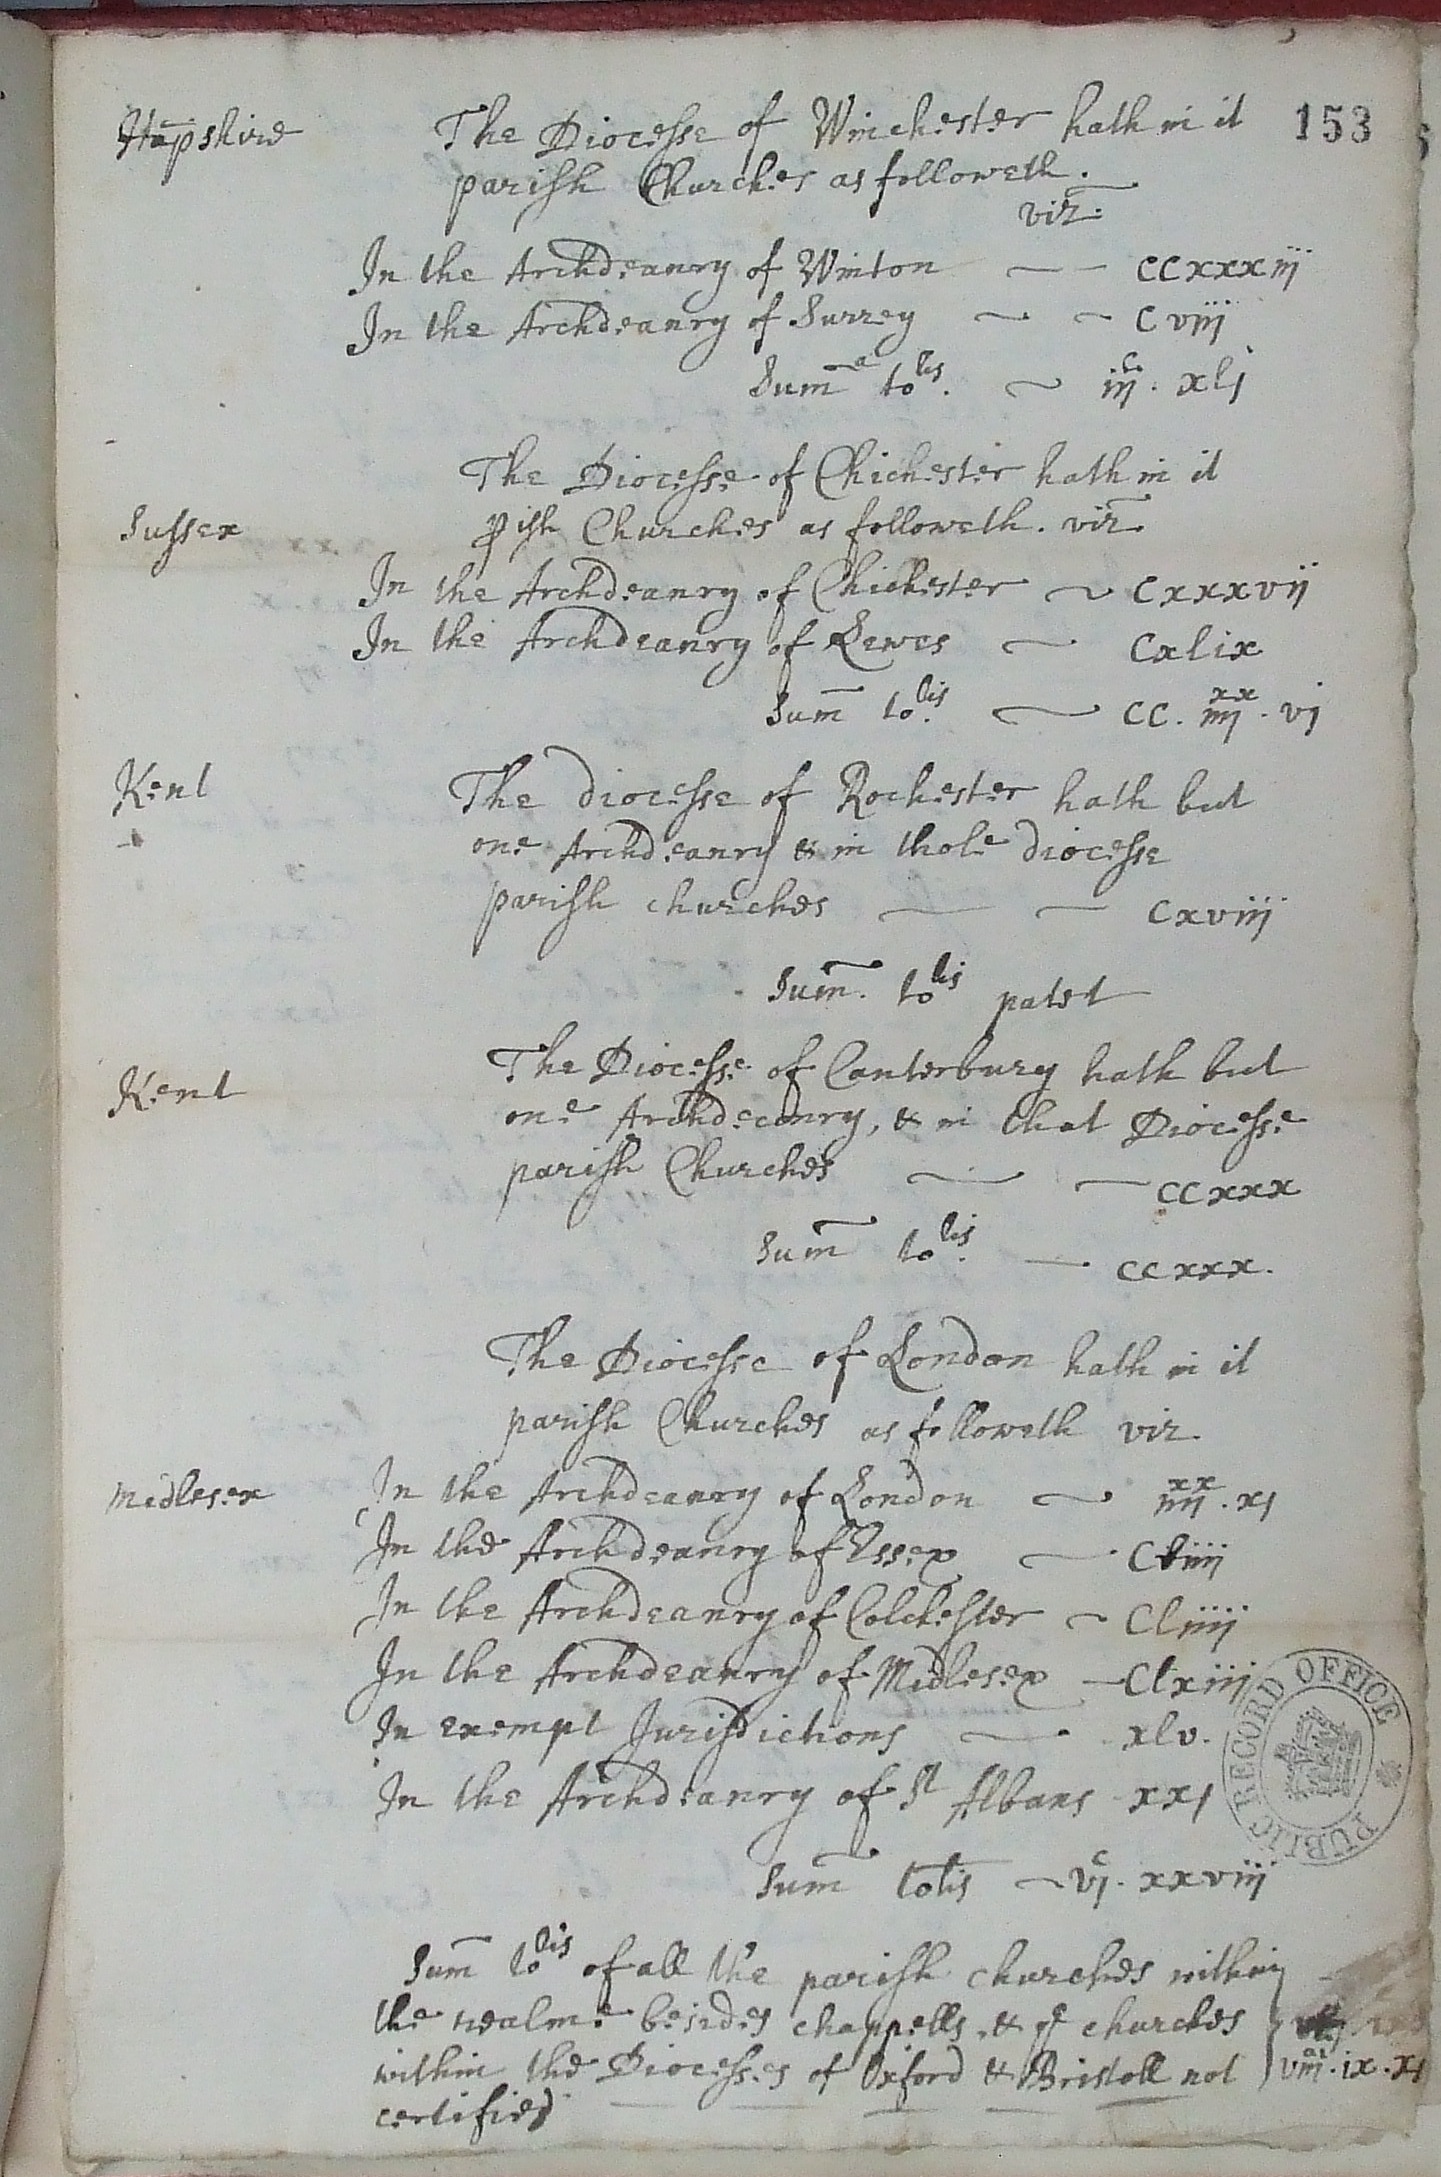 153
Hāpshire The Diocesse of Winchester hath in it
parish Churches as followeth.
viz:
In the Archdeanry of Winton — — CCxxxiij
In the Archdeanry of Surrey ~ ~ Cviij
Sum̄a tolis. ~ iijC. xlj
The Diocesse of Chichester hath in it
Sussex ꝑish Churches as followeth. viz
In the Archdeanry of Chichester ~ Cxxxvij
In the Archdeanry of Lewes — Cxlix
Sum̄ tolis. — CC. iiijxx. vj
Kent The diocesse of Rochester hath but
one Archdeanry & in thole diocesse
parish churches — — Cxviij
Sum̄. tolis patet
The Diocesse of Canterbury hath but
Kent one Archdeanry, & in that Diocesse
parish Churches — — CCxxx
Sum̄ tolis. — CCxxx.
The Diocesse of London hath in it
parish Churches as followeth viz
Midlesex In the Archdeanry of London ~ iiijxx. xj
In the Archdeanry of Essex — Cliiij
In the Archdeanry of Colchester ~ Cliiij
In the Archdeanry of Midlesex — Clxiij
In exempt Jurisdictions — xlv.
In the Archdeanry of St Albans xxj
Sum̄ totlis ~ vjC. xxviij
Sum̄ tolis of all the parish churches within
the realme besides chappells, & ye churches
within the Diocesses of Oxford & Bristoll not } viijm. ix. xj
certified
PUBLIC RECORD OFFICE